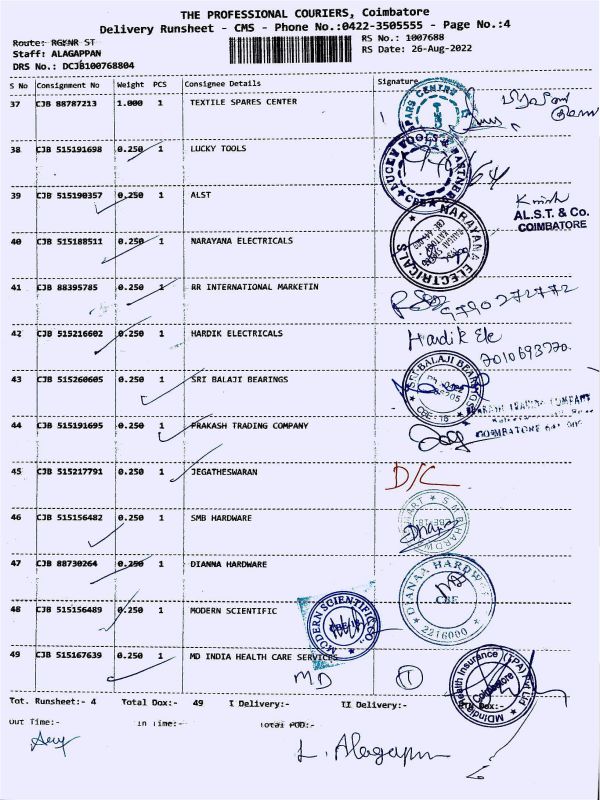 THE PROFESSIONAL COURIERS, Coimbatore
Delivery Runsheet - CMS - Phone No.:0422-3505555 - Page No.:4
Route: RGKNR ST
RS No.: 1007688
Staff: ALAGAPPAN
RS Date: 26-Aug-2022
DRS No.: DCJB100768804
S No Consignment No Weight PCS Consignee Details Signature
37 CJB 88787213 1.000 1 TEXTILE SPARES CENTER
38 CJB 515191698 0.250 1 LUCKY TOOLS
LUCKY TOOLS
CBE
39 CJB 515190357 0.250 1 ALST
AL.S.T. & Co.
COIMBATORE
40 CJB 515188511 0.250 1 NARAYANA ELECTRICALS
NARAYANA ELECTRICALS
41 CJB 88395785 0.250 1 RR INTERNATIONAL MARKETIN
9790272772
42 CJB 515216602 0.250 1 HARDIK ELECTRICALS
Hardik Ele
7010693770
43 CJB 515260605 0.250 1 SRI BALAJI BEARINGS
SRI BALAJI BEARINGS
CBE - 18
44 CJB 515191695 0.250 1 PRAKASH TRADING COMPANY
TRADING COMPANY
COIMBATORE
45 CJB 515217791 0.250 1 JEGATHESWARAN
D/C
46 CJB 515156482 0.250 1 SMB HARDWARE
47 CJB 88730264 0.250 1 DIANNA HARDWARE
CBE
2216000
48 CJB 515156489 0.250 1 MODERN SCIENTIFIC
MODERN SCIENTIFIC CO.
49 CJB 515167639 0.250 1 MD INDIA HEALTH CARE SERVICES
MD
1
MDIndia Health Insurance (TPA) Pvt Ltd
Coimbatore
Tot. Runsheet:- 4 Total Dox:- 49 I Delivery:- II Delivery:- Dox:-
Out Time:- In Time:- Total POD:-
L. Alagappn